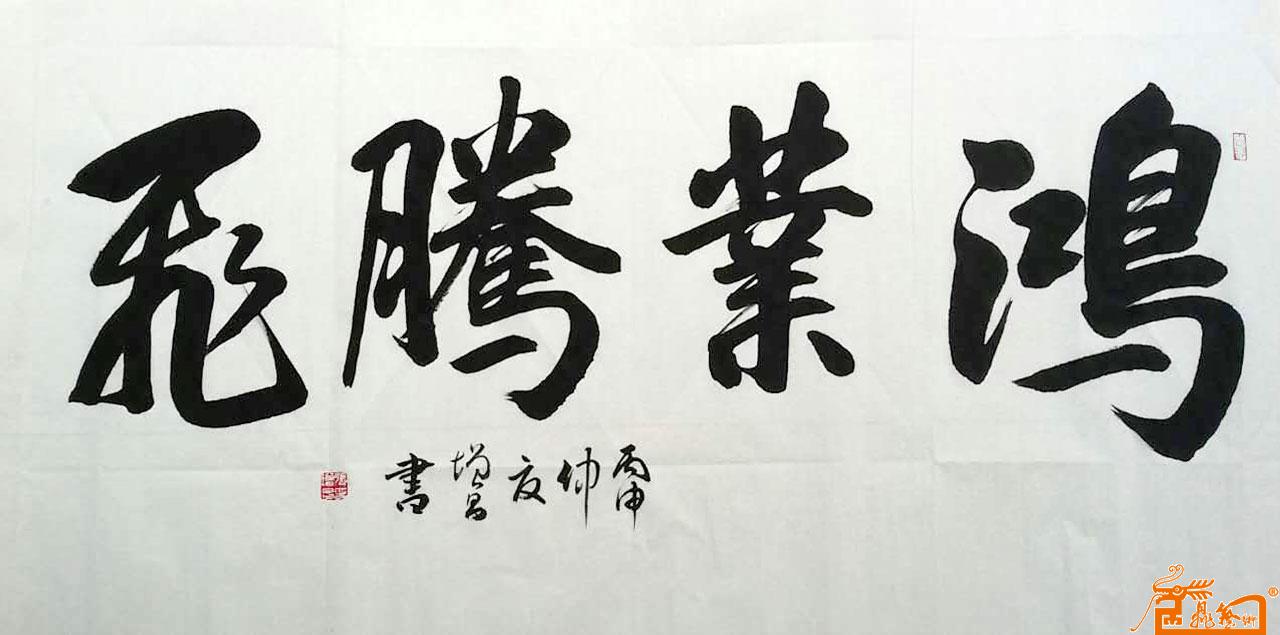 鸿業騰飛
丙申仲夏增昌書